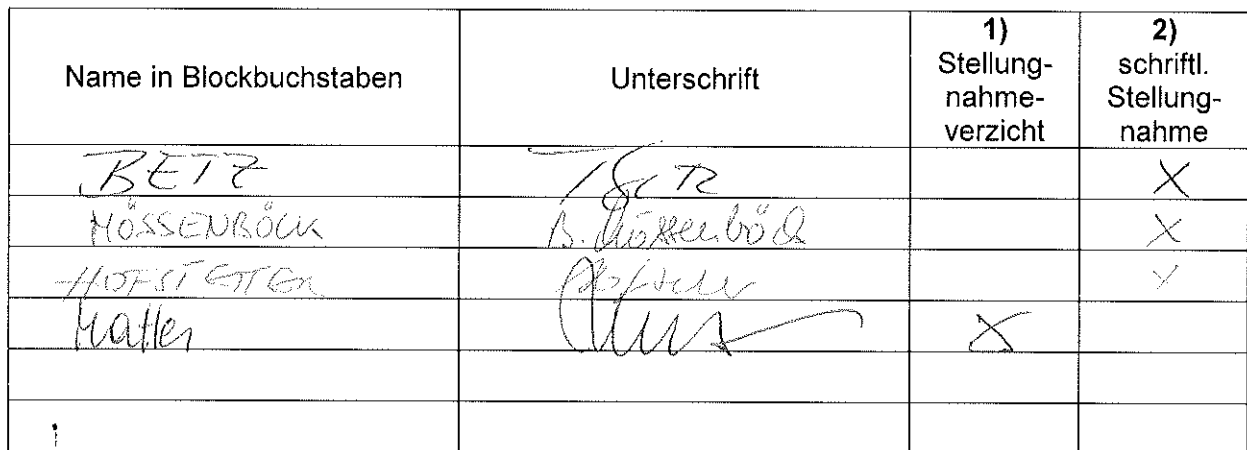 Name in Blockbuchstaben Unterschrift 1) Stellung-nahme-verzicht 2) schriftl. Stellung-nahme
BETZ X
MÖSSENBÖCK B. Mössenböck X
HOFSTETTER X
X